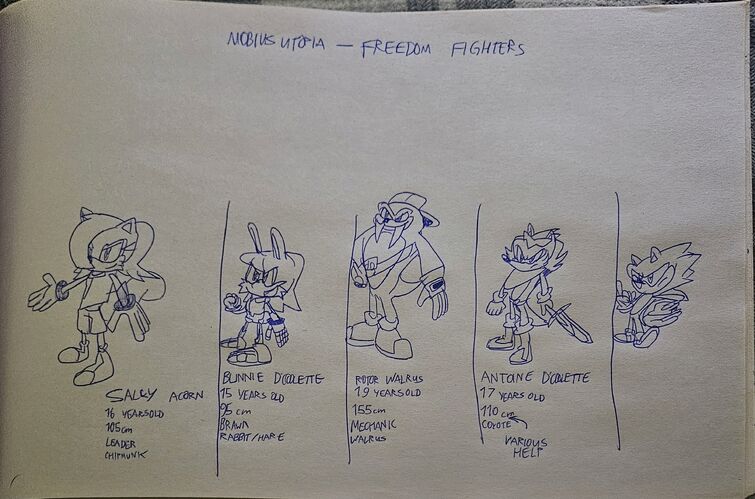 MOBIUS UTOPIA — FREEDOM FIGHTERS
SALLY ACORN
16 YEARS OLD
105cm
LEADER
CHIPMUNK
BUNNIE D'COLETTE
15 YEARS OLD
95 cm
BRAWN
RABBIT/HARE
ROTOR WALRUS
19 YEARS OLD
155cm
MECHANIC
WALRUS
ANTOINE D'COLETTE
17 YEARS OLD
110 cm
COYOTE
VARIOUS
HELP